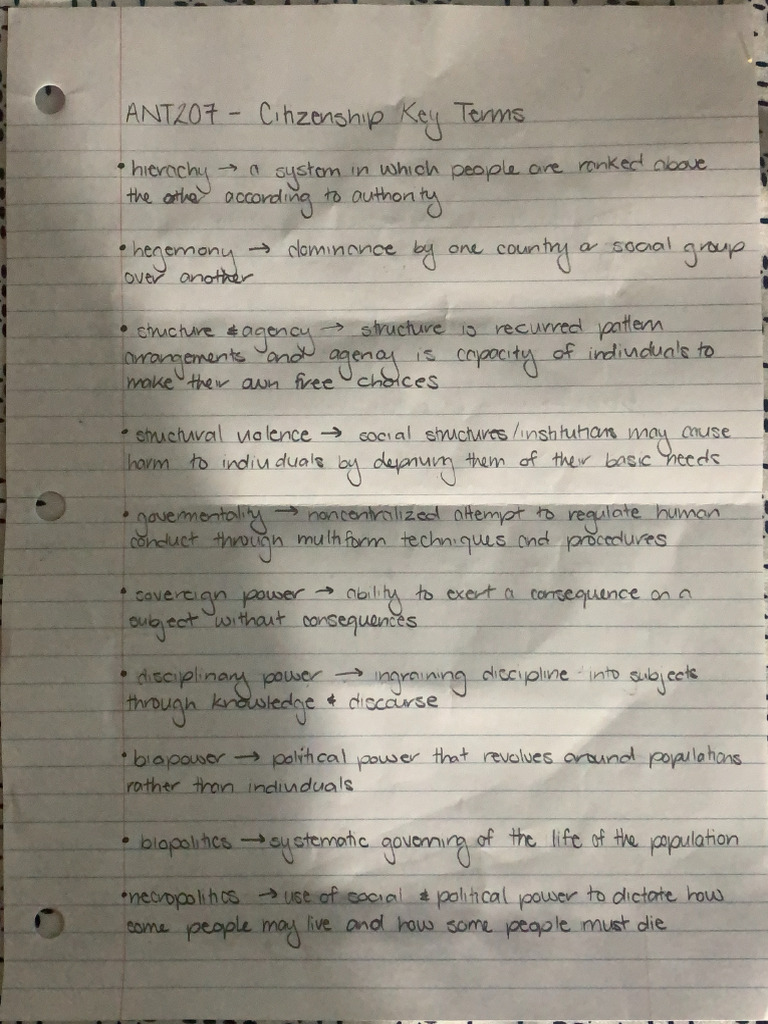 ANT207 - Citizenship Key Terms
• hierachy → a system in which people are ranked above
the other according to authority
• hegemony → dominance by one country or social group
over another
• structure & agency → structure is recurred pattern
arrangements and agency is capacity of individuals to
make their own free choices
• structural violence → social structures/institutions may cause
harm to individuals by depriving them of their basic needs
• govermentality → noncentralized attempt to regulate human
conduct through multiform techniques and procedures
• sovereign power → ability to exert a consequence on a
subject without consequences
• disciplinary power → ingraining discipline into subjects
through knowledge & discourse
• biopower → political power that revolves around populations
rather than individuals
• biopolitics → systematic governing of the life of the population
• necropolitics → use of social & political power to dictate how
some people may live and how some people must die